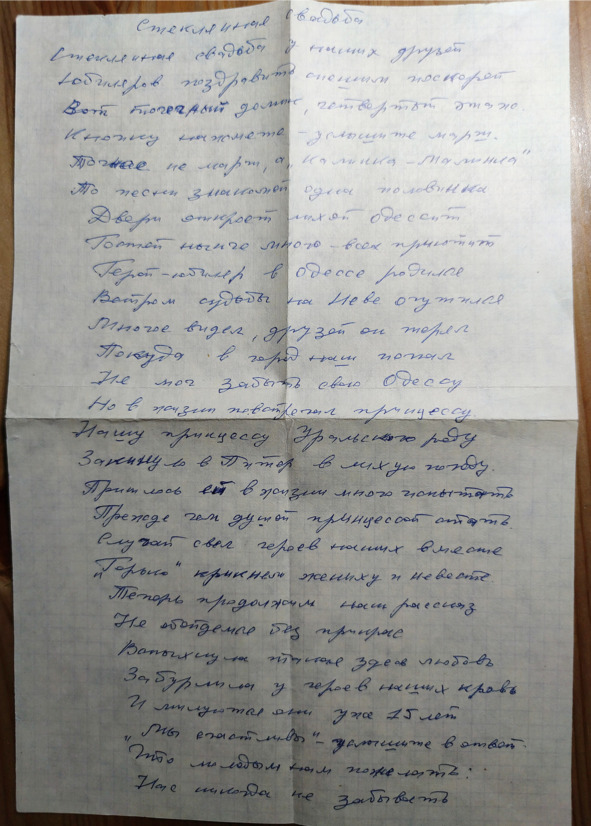 Стеклянная свадьба
Стеклянная свадьба у наших друзей
Юбиляров поздравить спешим поскорей
Вот точечный домик, четвёртый этаж
Кнопку нажмёте - услышите марш.
Точнее не марш, а „Калинка-Малинка"
То песни знакомой одна половинка
Двери откроет лихой одессит
Гостей нынче много - всех приютит
Герой-юбиляр в Одессе родился
Ветром судьбы на Неве очутился
Многое видел, друзей он терял
Покуда в город наш попал
Не мог забыть свою Одессу
Но в жизни повстречал принцессу.
Нашу принцессу Уральского роду
Закинуло в Питер в лихую погоду.
Пришлось ей в жизни много испытать
Прежде чем душой принцессой стать.
Случай свёл героев наших вместе
„Горько" крикнем жениху и невесте.
Теперь продолжим наш рассказ
Не обойдёмся без прикрас
Вспыхнула пылкая здесь любовь
Забурлила у героев наших кровь
И милуются они уже 15 лет
„Мы счастливы" - услышите в ответ.
Что молодым нам пожелать:
Нас никогда не забывать